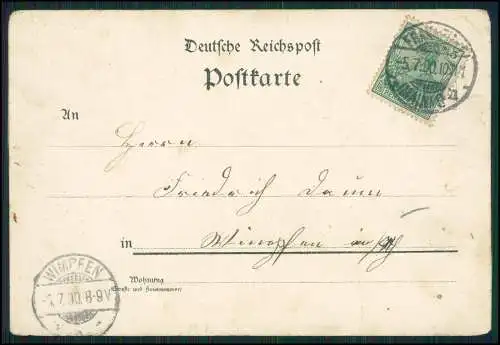 Deutsche Reichspost
Postkarte
An
Herrn
Friedrich Daum
in Wimpfen
Wohnung
(Straße und Hausnummer)
WIMPFEN
7.00.8-9V
5.7.00.10